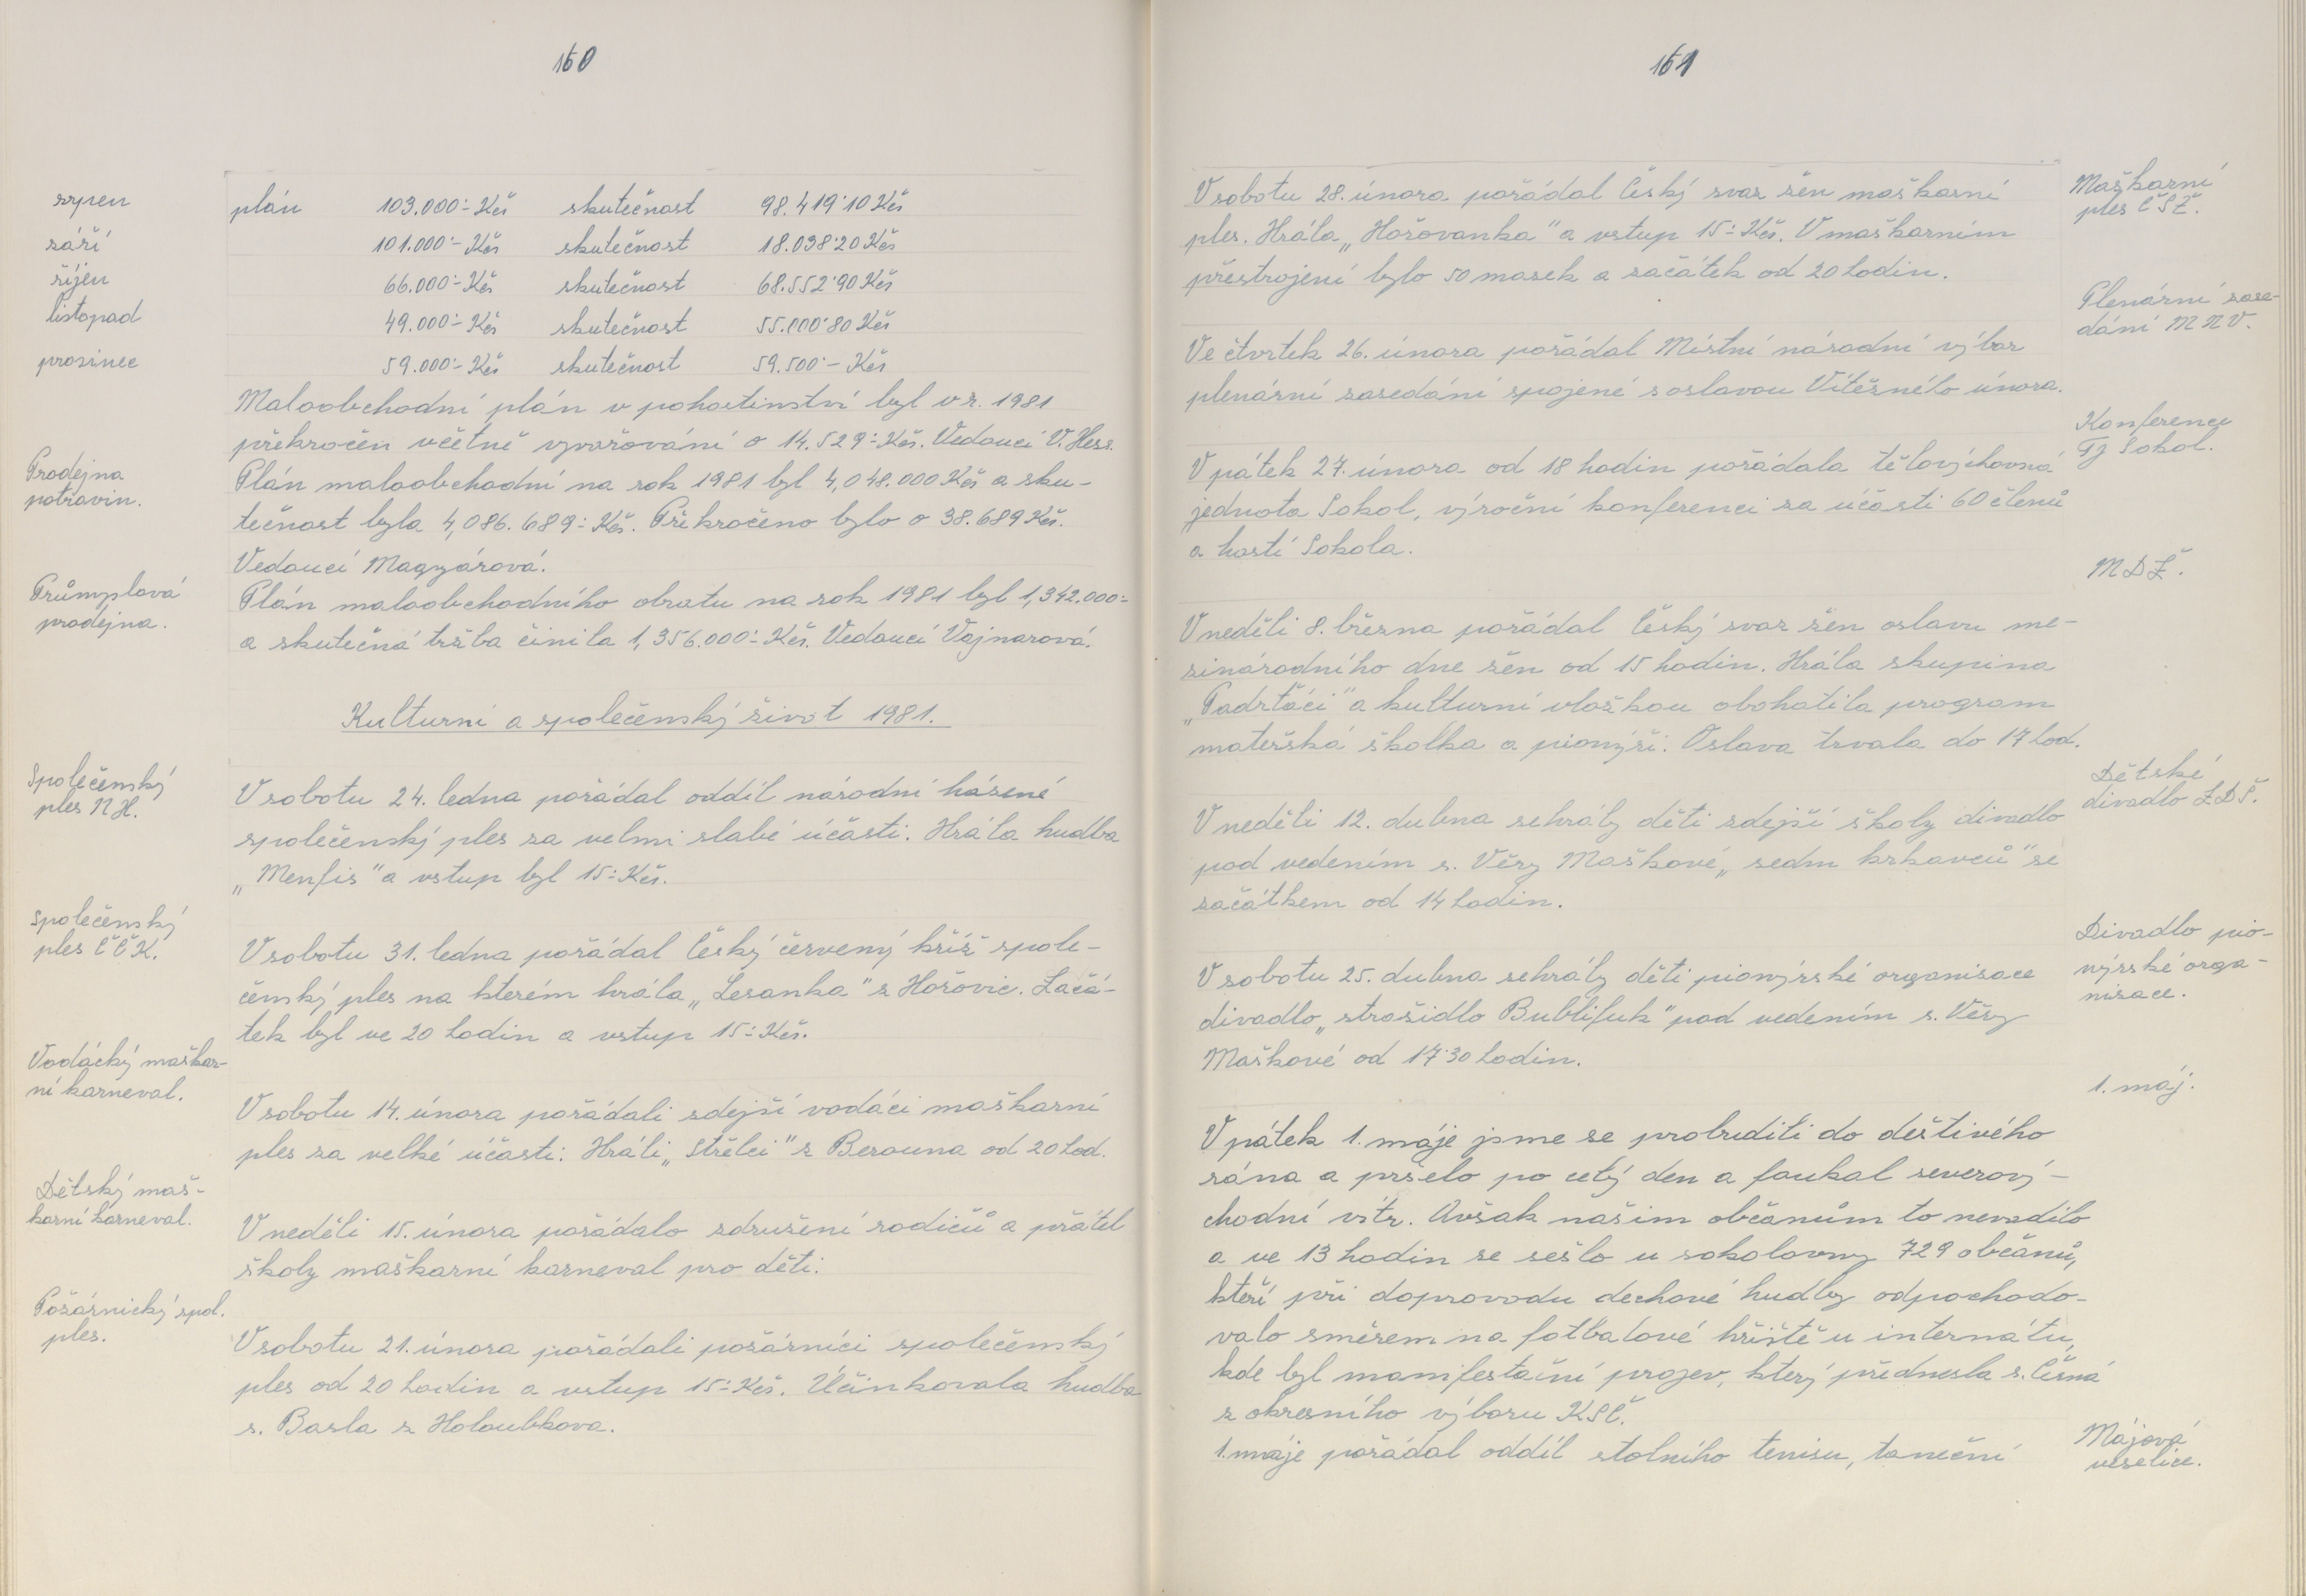 160
srpen plán 103.000·- Kčs skutečnost 98.419·10 Kčs
září 101.000·- Kčs skutečnost 18.038·20 Kčs
říjen 66.000·- Kčs skutečnost 68.552·90 Kčs
listopad 49.000·- Kčs skutečnost 55.000·80 Kčs
prosinec 59.000·- Kčs skutečnost 59.500·- Kčs
Maloobchodní plán v pohostinství byl v r. 1981
překročen včetně vyvařování o 14.529·- Kčs. Vedoucí V. Hess.
Prodejna
potravin.
Plán maloobchodní na rok 1981 byl 4,048.000 Kčs a sku-
tečnost byla 4,086.689·- Kčs. Překročeno bylo o 38.689 Kčs.
Vedoucí Magyárová.
Průmyslová
prodejna.
Plán maloobchodního obratu na rok 1981 byl 1,342.000·-
a skutečná tržba činila 1,356.000·- Kčs. Vedoucí Vajnarová.
Kulturní a společenský život 1981.
Společenský
ples N H.
V sobotu 24. ledna pořádal oddíl národní házené
společenský ples za velmi slabé účasti. Hrála hudba
„Menfis" a vstup byl 15·- Kčs.
Společenský
ples Č Č K.
V sobotu 31. ledna pořádal Český červený kříž spole-
čenský ples na kterém hrála „Lesanka" z Hořovic. Začá-
tek byl ve 20 hodin a vstup 15·- Kčs.
Vodácký maškar-
ní karneval.
V sobotu 14. února pořádali zdejší vodáci maškarní
ples za velké účasti. Hráli „Střelci" z Berouna od 20 hod.
Dětský maš-
karní karneval.
V neděli 15. února pořádalo sdružení rodičů a přátel
školy maškarní karneval pro děti.
Požárnický spol.
ples.
V sobotu 21. února pořádali požárníci společenský
ples od 20 hodin a vstup 15·- Kčs. Účinkovala hudba
s. Basla z Holoubkova.
161
Maškarní
ples Č S Ž.
V sobotu 28. února pořádal Český svaz žen maškarní
ples. Hrála „Hořovanka" a vstup 15·- Kčs. V maškarním
přestrojení bylo 50 masek a začátek od 20 hodin.
Plenární zase-
dání M N V.
Ve čtvrtek 26. února pořádal Místní národní výbor
plenární zasedání spojené s oslavou Vítězného února.
Konference
Tj Sokol.
V pátek 27. února od 18 hodin pořádala tělovýchovná
jednota Sokol, výroční konferenci za účasti 60 členů
a hostí Sokola.
M D Ž.
V neděli 8. března pořádal Český svaz žen oslavu me-
zinárodního dne žen od 15 hodin. Hrála skupina
„Padrťáci" a kulturní vložkou obohatila program
mateřská školka a pionýři. Oslava trvala do 17 hod.
Dětské
divadlo Z D Š.
V neděli 12. dubna sehrály děti zdejší školy divadlo
pod vedením s. Věry Maškové „sedm krkavců" se
začátkem od 14 hodin.
Divadlo pio-
nýrské orga-
nisace.
V sobotu 25. dubna sehrály děti pionýrské organisace
divadlo „strašidlo Bublifuk" pod vedením s. Věry
Maškové od 17·30 hodin.
1. máj.
V pátek 1. máje jsme se probudili do deštivého
rána a pršelo po celý den a foukal severový-
chodní vítr. Avšak našim občanům to nevadilo
a ve 13 hodin se sešlo u sokolovny 729 občanů,
kteří při doprovodu dechové hudby odpochodo-
valo směrem na fotbalové hřiště u internátu,
kde byl manifestační projev, který přednesla s. Černá
z okresního výboru KSČ.
Májová
veselice.
1. máje pořádal oddíl stolního tenisu, taneční